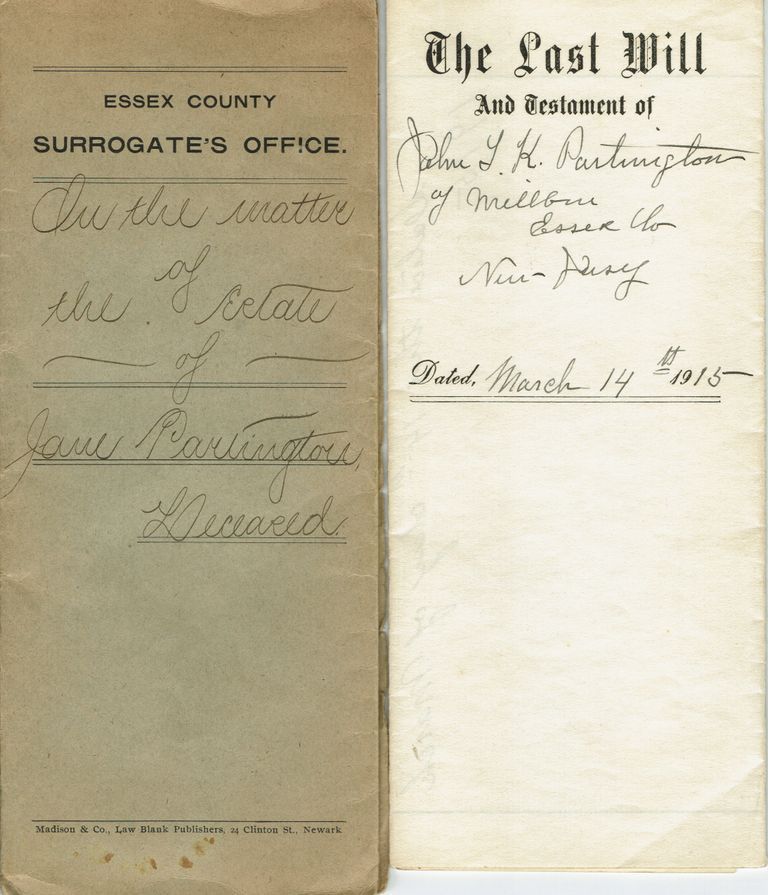 ESSEX COUNTY
SURROGATE'S OFFICE.
In the matter
of
the Estate
of
Jane Partington,
Deceased.
Madison & Co., Law Blank Publishers, 24 Clinton St., Newark
The Last Will
And Testament of
John T. K. Partington
of Millburn
Essex Co
New Jersey
Dated, March 14th 1915